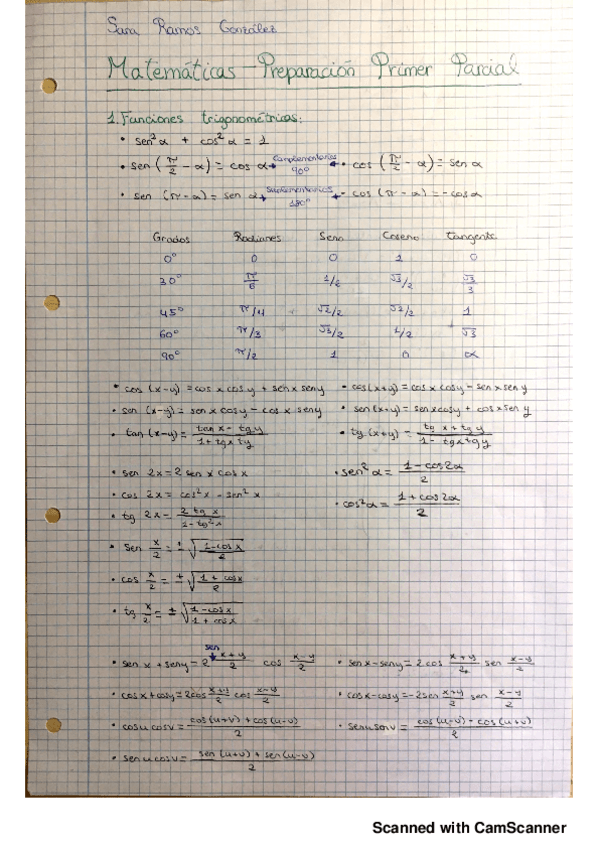 Sara Ramos González
Matemáticas - Preparación Primer Parcial
1. Funciones trigonométricas:
• sen²α + cos²α = 1
• sen (π/2 - α) = cos α Complementarios 90° • cos (π/2 - α) = sen α
• sen (π - α) = sen α Suplementarios 180° • cos (π - α) = - cos α
Grados Radianes Seno Coseno Tangente
0° 0 0 1 0
30° π/6 1/2 √3/2 √3/3
45° π/4 √2/2 √2/2 1
60° π/3 √3/2 1/2 √3
90° π/2 1 0 ∝
• cos (x-y) = cos x cos y + sen x sen y • cos (x+y) = cos x cos y - sen x sen y
• sen (x-y) = sen x cos y - cos x sen y • sen (x+y) = sen x cos y + cos x sen y
• tan (x-y) = tan x - tg y / 1 + tg x ty • tg (x+y) = tg x + tg y / 1 - tg x tg y
• sen 2x = 2 sen x cos x • sen²α = 1 - cos 2α / 2
• cos 2x = cos²x - sen²x • cos²α = 1 + cos 2α / 2
• tg 2x = 2 tg x / 1 - tg²x
• sen x/2 = ± √(1 - cos x / 2)
• cos x/2 = ± √(1 + cos x / 2)
• tg x/2 = ± √(1 - cos x / 1 + cos x)
• sen x + sen y = 2 sen x+y/2 cos x-y/2 • sen x - sen y = 2 cos x+y/2 sen x-y/2
• cos x + cos y = 2 cos x+y/2 cos x-y/2 • cos x - cos y = -2 sen x+y/2 sen x-y/2
• cos u cos v = cos (u+v) + cos (u-v) / 2 • sen u sen v = cos (u-v) - cos (u+v) / 2
• sen u cos v = sen (u+v) + sen (u-v) / 2
Scanned with CamScanner